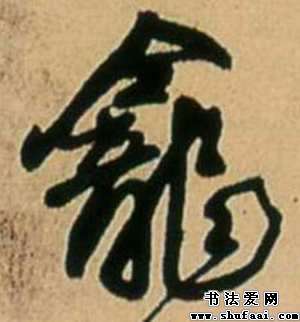 龕
书法爱网
www.shufaai.com